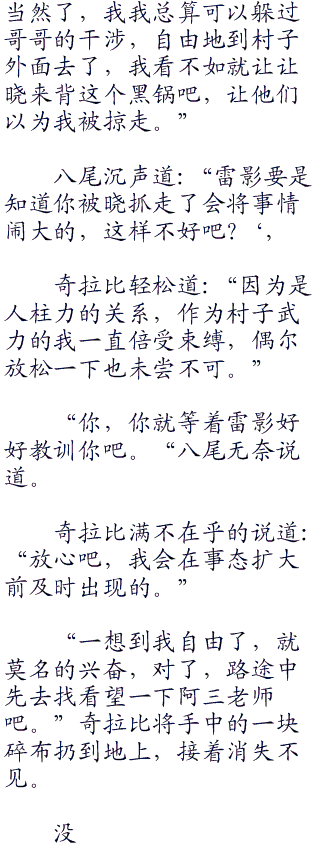 当然了，我我总算可以躲过
哥哥的干涉，自由地到村子
外面去了，我看不如就让让
晓来背这个黑锅吧，让他们
以为我被掠走。”
八尾沉声道：“雷影要是
知道你被晓抓走了会将事情
闹大的，这样不好吧？‘，
奇拉比轻松道：“因为是
人柱力的关系，作为村子武
力的我一直倍受束缚，偶尔
放松一下也未尝不可。”
“你，你就等着雷影好
好教训你吧。“八尾无奈说
道。
奇拉比满不在乎的说道：
“放心吧，我会在事态扩大
前及时出现的。”
“一想到我自由了，就
莫名的兴奋，对了，路途中
先去找看望一下阿三老师
吧。”奇拉比将手中的一块
碎布扔到地上，接着消失不
见。
没